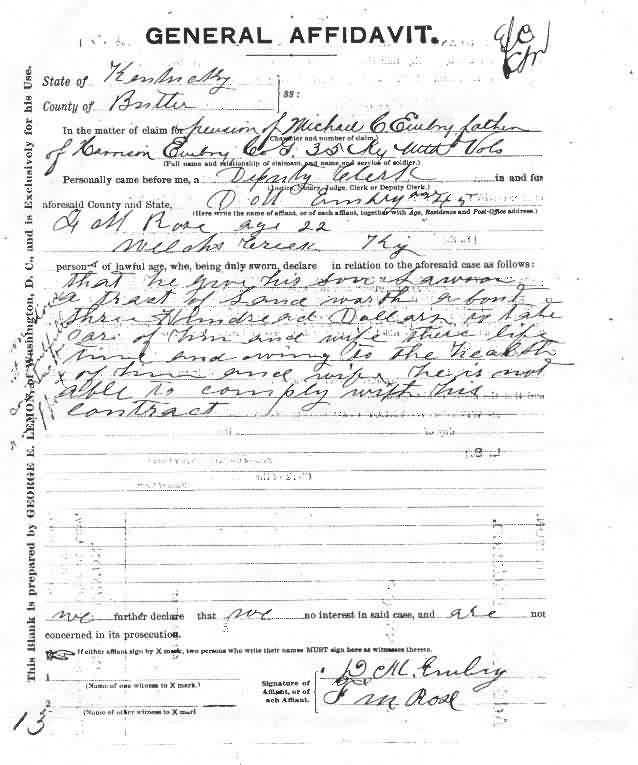 GENERAL AFFIDAVIT.
State of Kentucky
ss:
County of Butler
In the matter of claim for pension of Michael C Embry father
(Character and number of claim.)
of Harrison Embry Co G 35 Ky Mtd Vols
(Full name and relationship of claimant, and name and service of soldier.)
Personally came before me, a Deputy Clerk in and for
(Justice, Notary, Judge, Clerk or Deputy Clerk.)
aforesaid County and State, D M Embry age 45
(Here write the name of affiant, or of each affiant, together with Age, Residence and Post-Office address.)
F M Rose age 22
Welchs Creek Ky
persons of lawful age, who, being duly sworn, declare in relation to the aforesaid case as follows:
that he give his son
a tract of Land worth about
three Hundread Dollars to take
care of him and wife there life
time and owing to the health
of him and wife he is not
able to comply with his
contract
we further declare that we no interest in said case, and are not
concerned in its prosecution.
If either affiant sign by X mark, two persons who write their names MUST sign here as witnesses thereto.
1
(Name of one witness to X mark.)
(Name of other witness to X mark
Signature of
Affiant, or of
each Affiant.
D M. Embry
F M Rose
13
This Blank is prepared by GEORGE E. LEMON, of Washington, D. C., and is Exclusively for his Use.